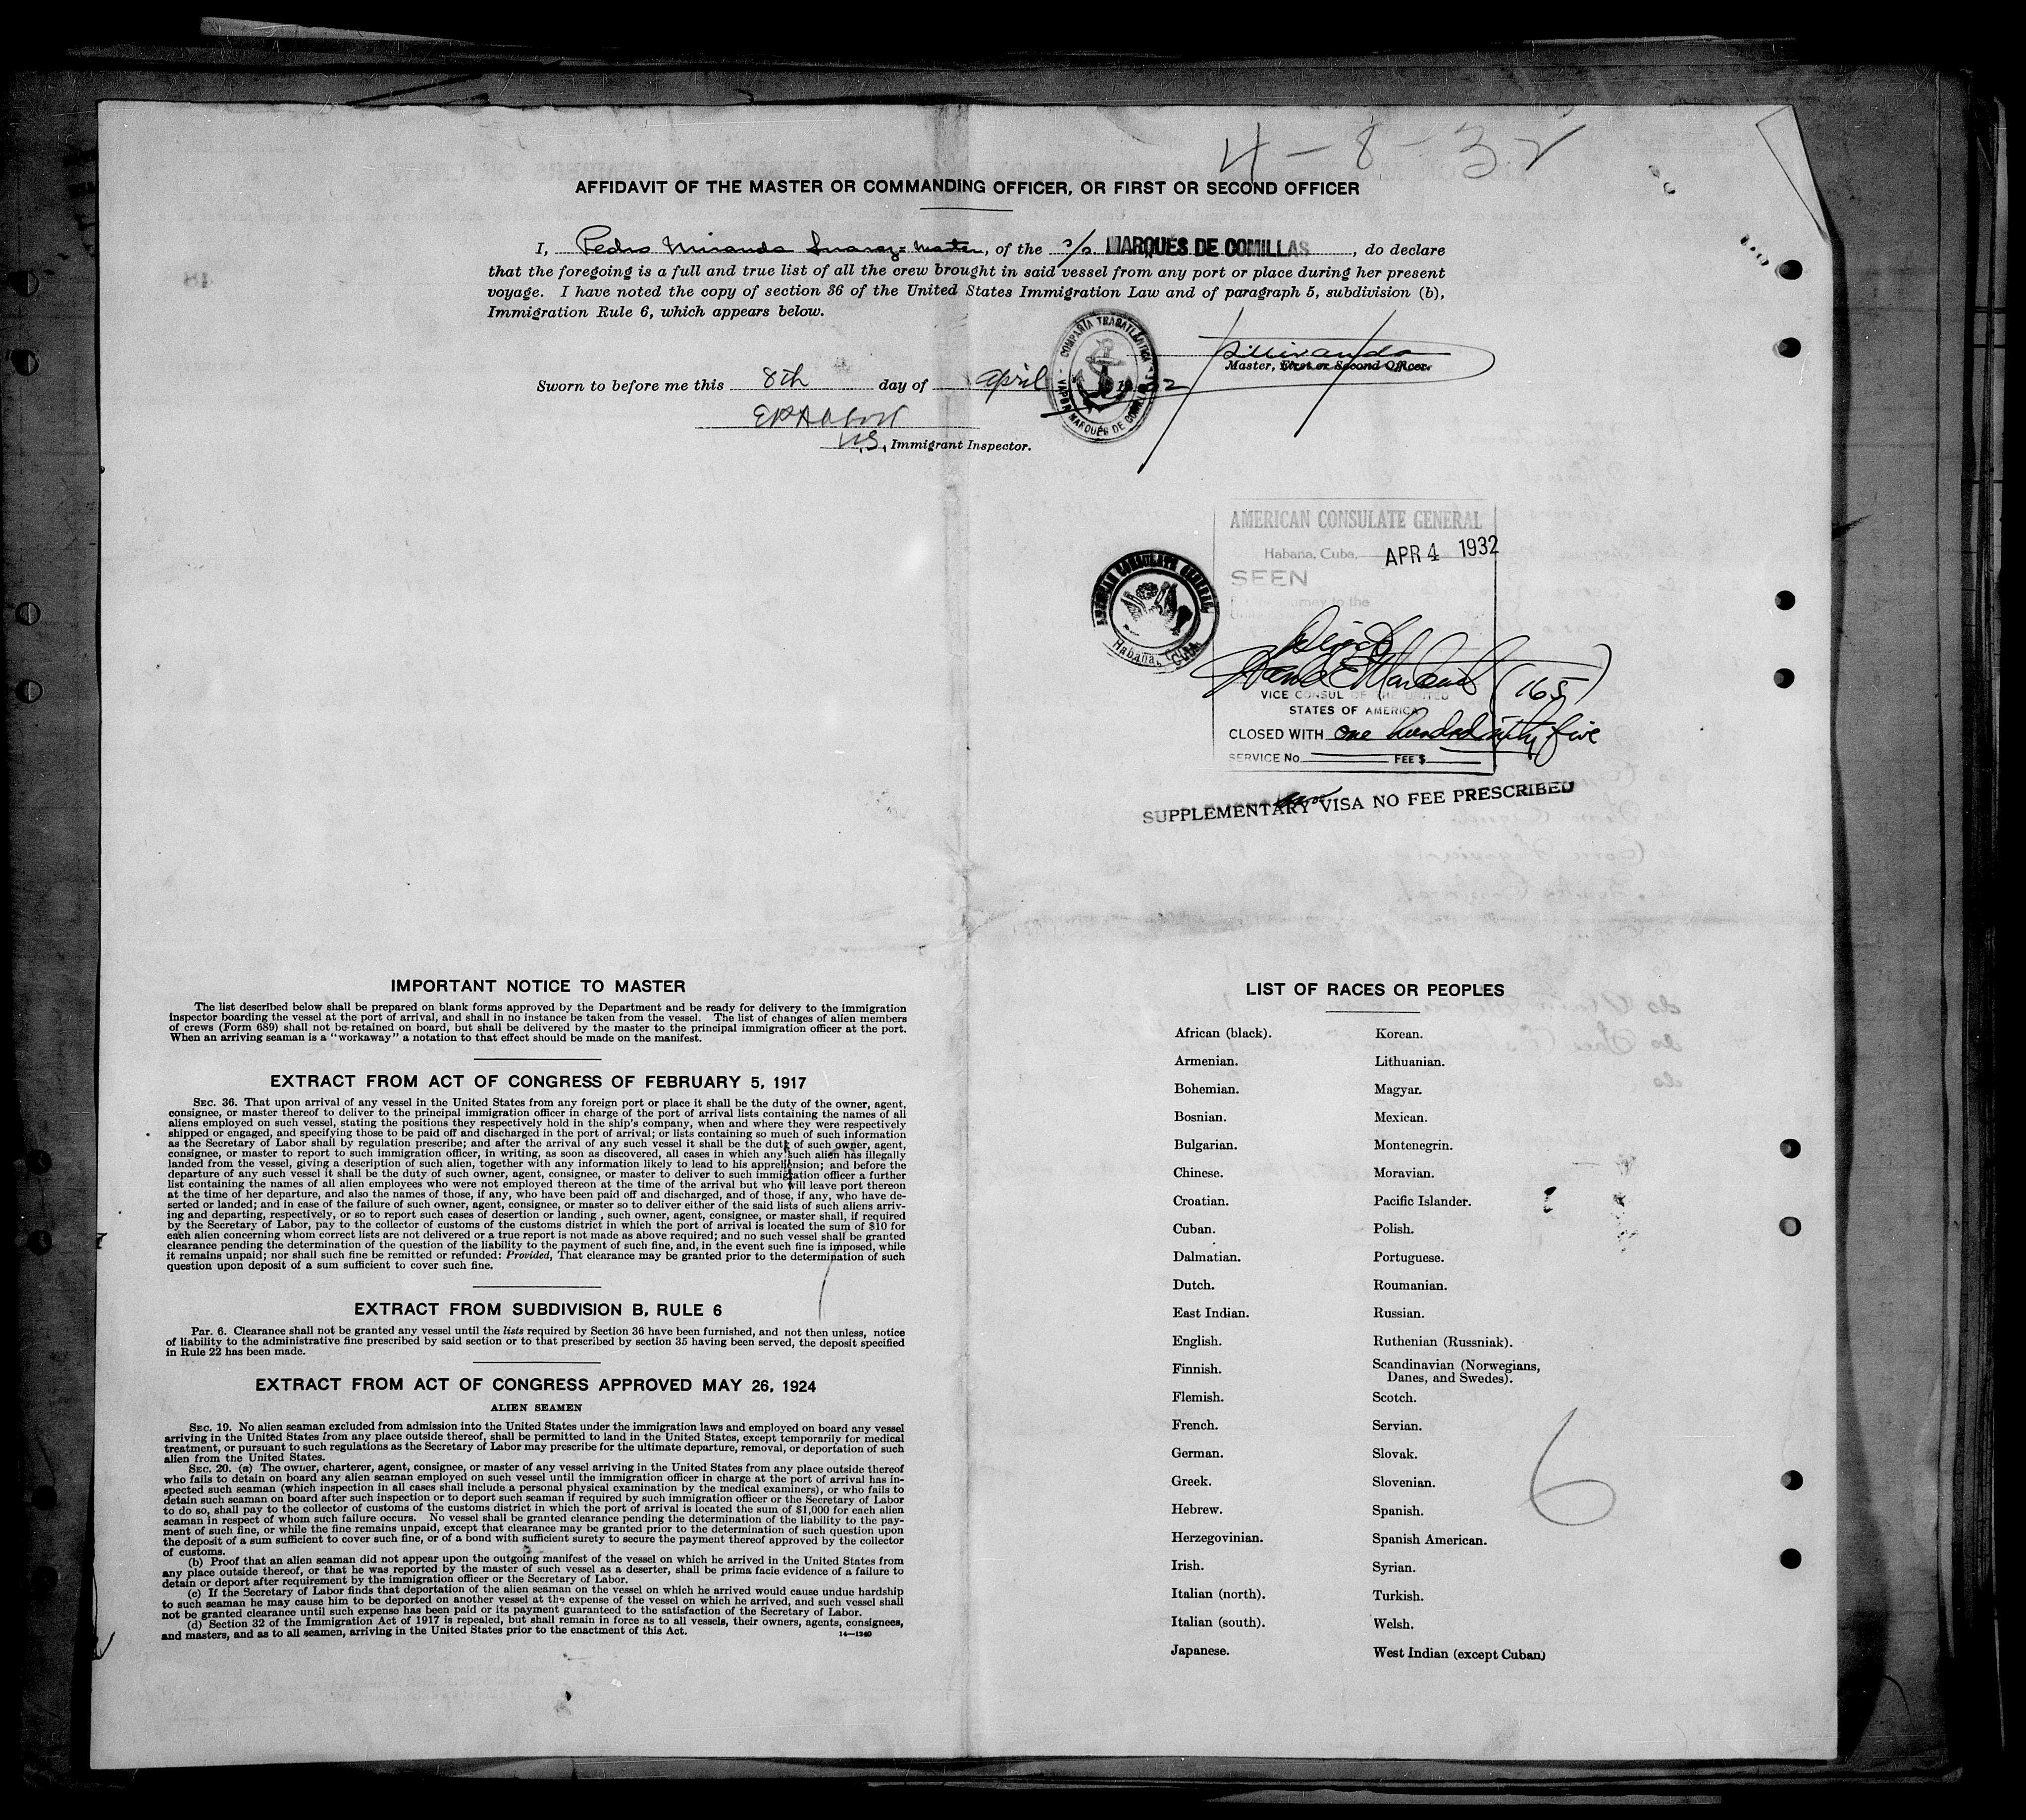 4-8-32
AFFIDAVIT OF THE MASTER OR COMMANDING OFFICER, OR FIRST OR SECOND OFFICER
I, Pedro Miranda Suarez - Master, of the s/s. MARQUÉS DE COMILLAS, do declare
that the foregoing is a full and true list of all the crew brought in said vessel from any port or place during her present
voyage. I have noted the copy of section 36 of the United States Immigration Law and of paragraph 5, subdivision (b),
Immigration Rule 6, which appears below.
COMPAÑIA TRASATLÁNTICA
VAPOR MARQUÉS DE COMILLAS
PMiranda
Master, First or Second Officer.
Sworn to before me this 8th day of April 1932
U.S. Immigrant Inspector.
AMERICAN CONSULATE GENERAL
Habana, Cuba, APR 4 1932
SEEN
For the journey to the
AMERICAN CONSULATE GENERAL
Habana, CUBA.
(165)
VICE CONSUL OF THE UNITED
STATES OF AMERICA
CLOSED WITH one hundred sixty five
SERVICE No. FEE $
SUPPLEMENTARY VISA NO FEE PRESCRIBED
IMPORTANT NOTICE TO MASTER
The list described below shall be prepared on blank forms approved by the Department and be ready for delivery to the immigration
inspector boarding the vessel at the port of arrival, and shall in no instance be taken from the vessel. The list of changes of alien members
of crews (Form 689) shall not be retained on board, but shall be delivered by the master to the principal immigration officer at the port.
When an arriving seaman is a "workaway" a notation to that effect should be made on the manifest.
EXTRACT FROM ACT OF CONGRESS OF FEBRUARY 5, 1917
SEC. 36. That upon arrival of any vessel in the United States from any foreign port or place it shall be the duty of the owner, agent,
consignee, or master thereof to deliver to the principal immigration officer in charge of the port of arrival lists containing the names of all
aliens employed on such vessel, stating the positions they respectively hold in the ship's company, when and where they were respectively
shipped or engaged, and specifying those to be paid off and discharged in the port of arrival; or lists containing so much of such information
as the Secretary of Labor shall by regulation prescribe; and after the arrival of any such vessel it shall be the duty of such owner, agent,
consignee, or master to report to such immigration officer, in writing, as soon as discovered, all cases in which any such alien has illegally
landed from the vessel, giving a description of such alien, together with any information likely to lead to his apprehension; and before the
departure of any such vessel it shall be the duty of such owner, agent, consignee, or master to deliver to such immigration officer a further
list containing the names of all alien employees who were not employed thereon at the time of the arrival but who will leave port thereon
at the time of her departure, and also the names of those, if any, who have been paid off and discharged, and of those, if any, who have de-
serted or landed; and in case of the failure of such owner, agent, consignee, or master so to deliver either of the said lists of such aliens arriv-
ing and departing, respectively, or so to report such cases of desertion or landing, such owner, agent, consignee, or master shall, if required
by the Secretary of Labor, pay to the collector of customs of the customs district in which the port of arrival is located the sum of $10 for
each alien concerning whom correct lists are not delivered or a true report is not made as above required; and no such vessel shall be granted
clearance pending the determination of the question of the liability to the payment of such fine, and, in the event such fine is imposed, while
it remains unpaid; nor shall such fine be remitted or refunded: Provided, That clearance may be granted prior to the determination of such
question upon deposit of a sum sufficient to cover such fine.
EXTRACT FROM SUBDIVISION B, RULE 6
Par. 6. Clearance shall not be granted any vessel until the lists required by Section 36 have been furnished, and not then unless, notice
of liability to the administrative fine prescribed by said section or to that prescribed by section 35 having been served, the deposit specified
in Rule 22 has been made.
EXTRACT FROM ACT OF CONGRESS APPROVED MAY 26, 1924
ALIEN SEAMEN
SEC. 19. No alien seaman excluded from admission into the United States under the immigration laws and employed on board any vessel
arriving in the United States from any place outside thereof, shall be permitted to land in the United States, except temporarily for medical
treatment, or pursuant to such regulations as the Secretary of Labor may prescribe for the ultimate departure, removal, or deportation of such
alien from the United States.
SEC. 20. (a) The owner, charterer, agent, consignee, or master of any vessel arriving in the United States from any place outside thereof
who fails to detain on board any alien seaman employed on such vessel until the immigration officer in charge at the port of arrival has in-
spected such seaman (which inspection in all cases shall include a personal physical examination by the medical examiners), or who fails to
detain such seaman on board after such inspection or to deport such seaman if required by such immigration officer or the Secretary of Labor
to do so, shall pay to the collector of customs of the customs district in which the port of arrival is located the sum of $1,000 for each alien
seaman in respect of whom such failure occurs. No vessel shall be granted clearance pending the determination of the liability to the pay-
ment of such fine, or while the fine remains unpaid, except that clearance may be granted prior to the determination of such question upon
the deposit of a sum sufficient to cover such fine, or of a bond with sufficient surety to secure the payment thereof approved by the collector
of customs.
(b) Proof that an alien seaman did not appear upon the outgoing manifest of the vessel on which he arrived in the United States from
any place outside thereof, or that he was reported by the master of such vessel as a deserter, shall be prima facie evidence of a failure to
detain or deport after requirement by the immigration officer or the Secretary of Labor.
(c) If the Secretary of Labor finds that deportation of the alien seaman on the vessel on which he arrived would cause undue hardship
to such seaman he may cause him to be deported on another vessel at the expense of the vessel on which he arrived, and such vessel shall
not be granted clearance until such expense has been paid or its payment guaranteed to the satisfaction of the Secretary of Labor.
(d) Section 32 of the Immigration Act of 1917 is repealed, but shall remain in force as to all vessels, their owners, agents, consignees,
and masters, and as to all seamen, arriving in the United States prior to the enactment of this Act.
14—1240
LIST OF RACES OR PEOPLES
African (black).
Armenian.
Bohemian.
Bosnian.
Bulgarian.
Chinese.
Croatian.
Cuban.
Dalmatian.
Dutch.
East Indian.
English.
Finnish.
Flemish.
French.
German.
Greek.
Hebrew.
Herzegovinian.
Irish.
Italian (north).
Italian (south).
Japanese.
Korean.
Lithuanian.
Magyar.
Mexican.
Montenegrin.
Moravian.
Pacific Islander.
Polish.
Portuguese.
Roumanian.
Russian.
Ruthenian (Russniak).
Scandinavian (Norwegians,
Danes, and Swedes).
Scotch.
Servian.
Slovak.
Slovenian.
Spanish.
Spanish American.
Syrian.
Turkish.
Welsh.
West Indian (except Cuban)
6